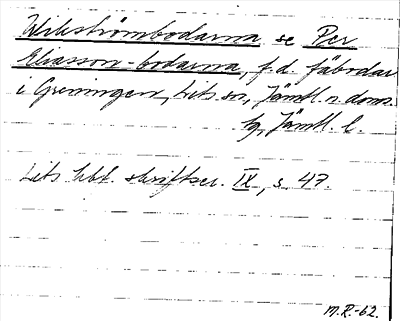 Wikströmbodarna se Per
Eliasson-bodarna, f.d. fäbodar
i Greningen, Lits sn, Jämtl. n. doms.
lg, Jämtl. l.
Lits hbf. skriftser. IX, s. 47.
M.R.-62.